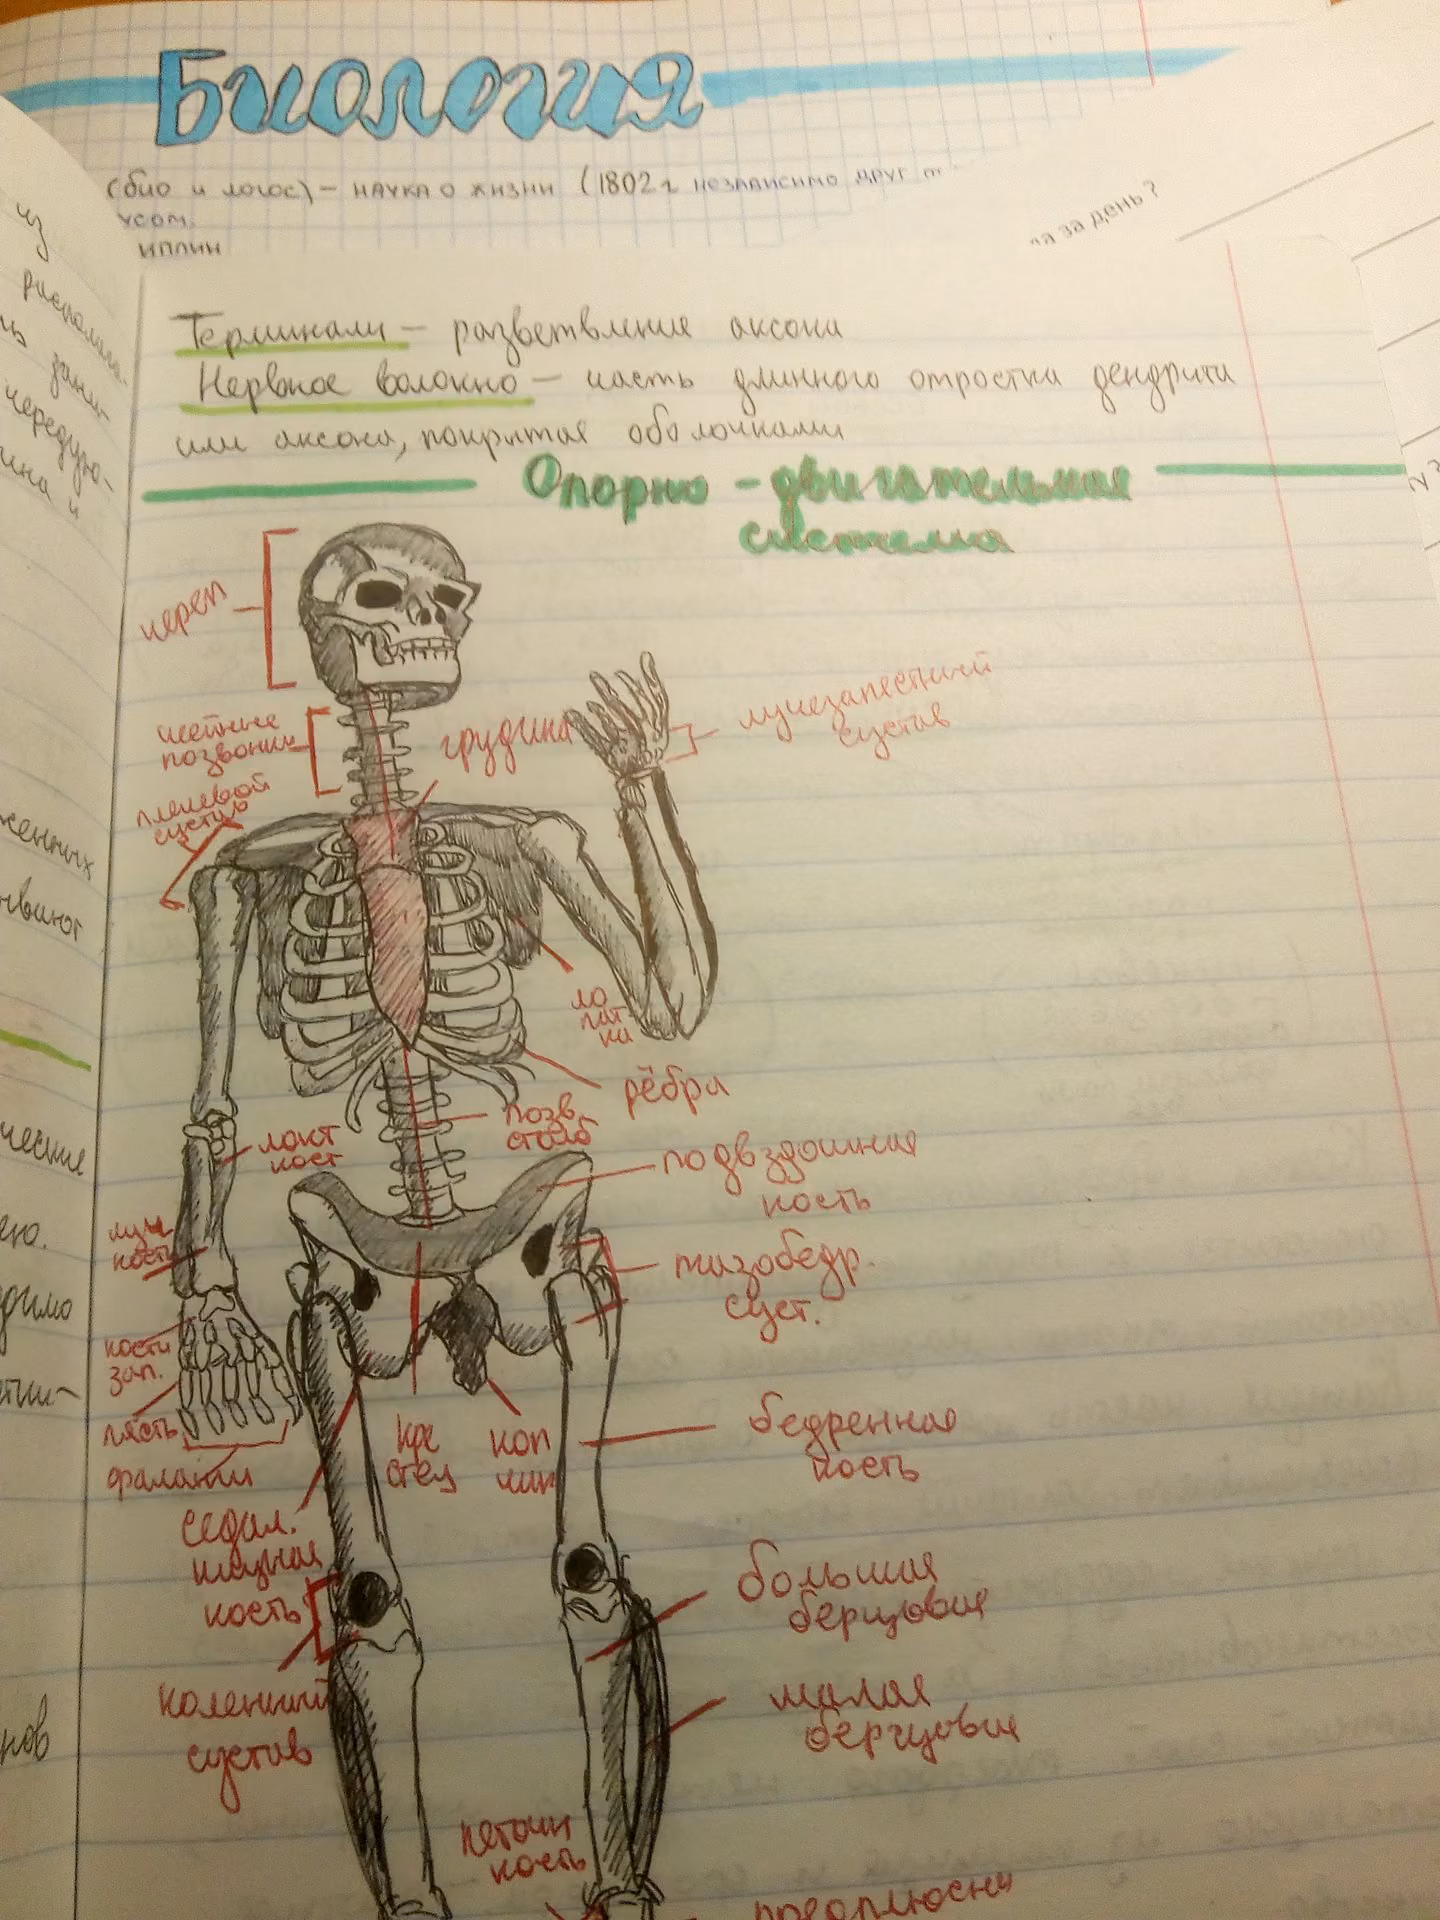 Биология
(био и логос) – наука о жизни (1802 г независимо друг
усом.
иплин
за день?
Терминали – разветвление аксона
Нервное волокно – часть длинного отростка дендрита
или аксона, покрытая оболочками
Опорно-двигательная
система
череп
шейные
позвонки
плечевой
сустав
грудина
лучезапястный
сустав
ло
пат-
ка
рёбра
позв.
столб
локт
кост
подвздошная
кость
луч.
кость
тазобедр.
суст.
кости
зап.
пясть
фаланги
кре
стец
коп
чик
бедренная
кость
седал.
ищная
кость
большая
берцовая
коленный
сустав
малая
берцовая
пяточн
кость
предплюсны
из
ина и
женных
ческие
ею.
димо
нов